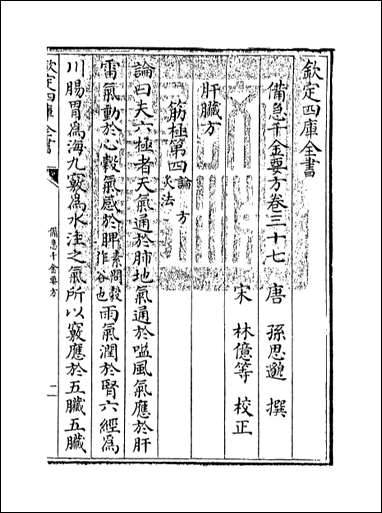 欽定四庫全書
備急千金要方卷三十七
唐 孫思邈 撰
宋 林億等 校正
肝臟方
筋極第四 論 方 灸法
論曰夫六極者天氣通於肺地氣通於嗌風氣應於肝
雷氣動於心穀氣感於脾素問穀作谷也雨氣潤於腎六經爲
川腸胃爲海九竅爲水注之氣所以竅應於五臟五臟
欽定四庫全書
備急千金要方